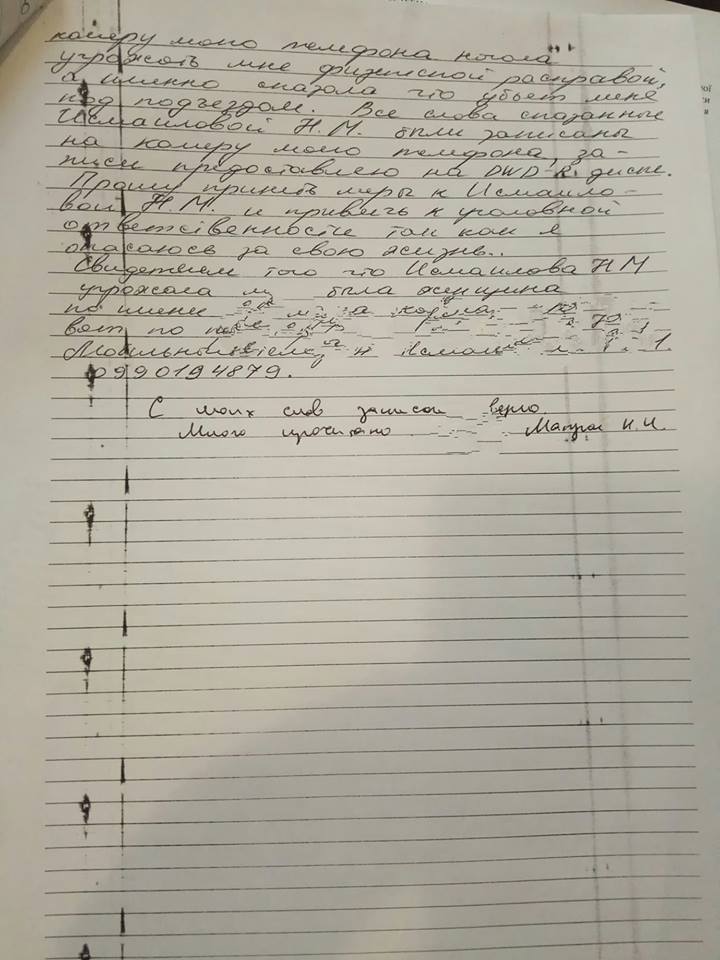 камеру моно телефона ночала
угрожать мне физической расправой,
а именно сказала что убьет меня
под подъездом. Все слова сказанные
Исмаиловой Н.М. были записаны
на камеру моего телефона, за-
писи предоставлено на DWD-R. диске.
Прошу принять меры к Исмаило-
вой Н.М. и привлечь к уголовной
ответственности так как я
опасаюсь за свою жизнь..
Свидетелем того что Исмаилова НМ
угрожала была женщина
по имени
по
79
0990194879.
С моих слов записан верно.
Мною прочитано Н.И.